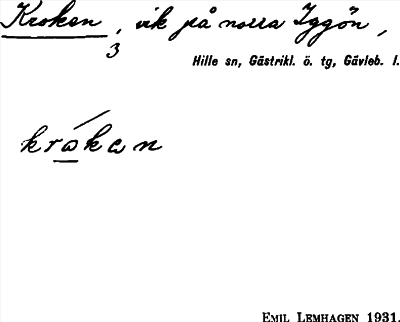 Kroken, vik på norra Iggön,
3
Hille sn, Gästrikl. ö. tg, Gävleb. l.
krákan
EMIL LEMHAGEN 1931.